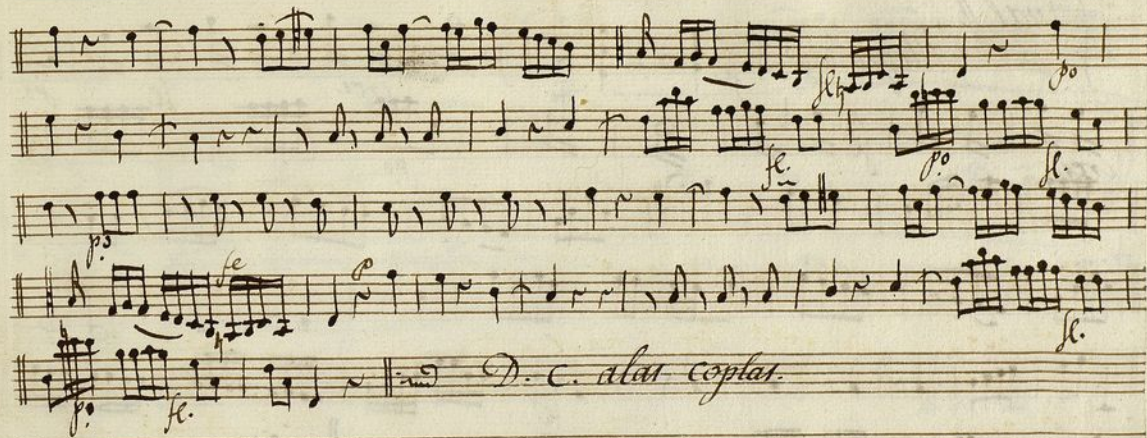 fe po
fe. po fe.
po
fe p
fe.
po fe. D. C. alas coplas.